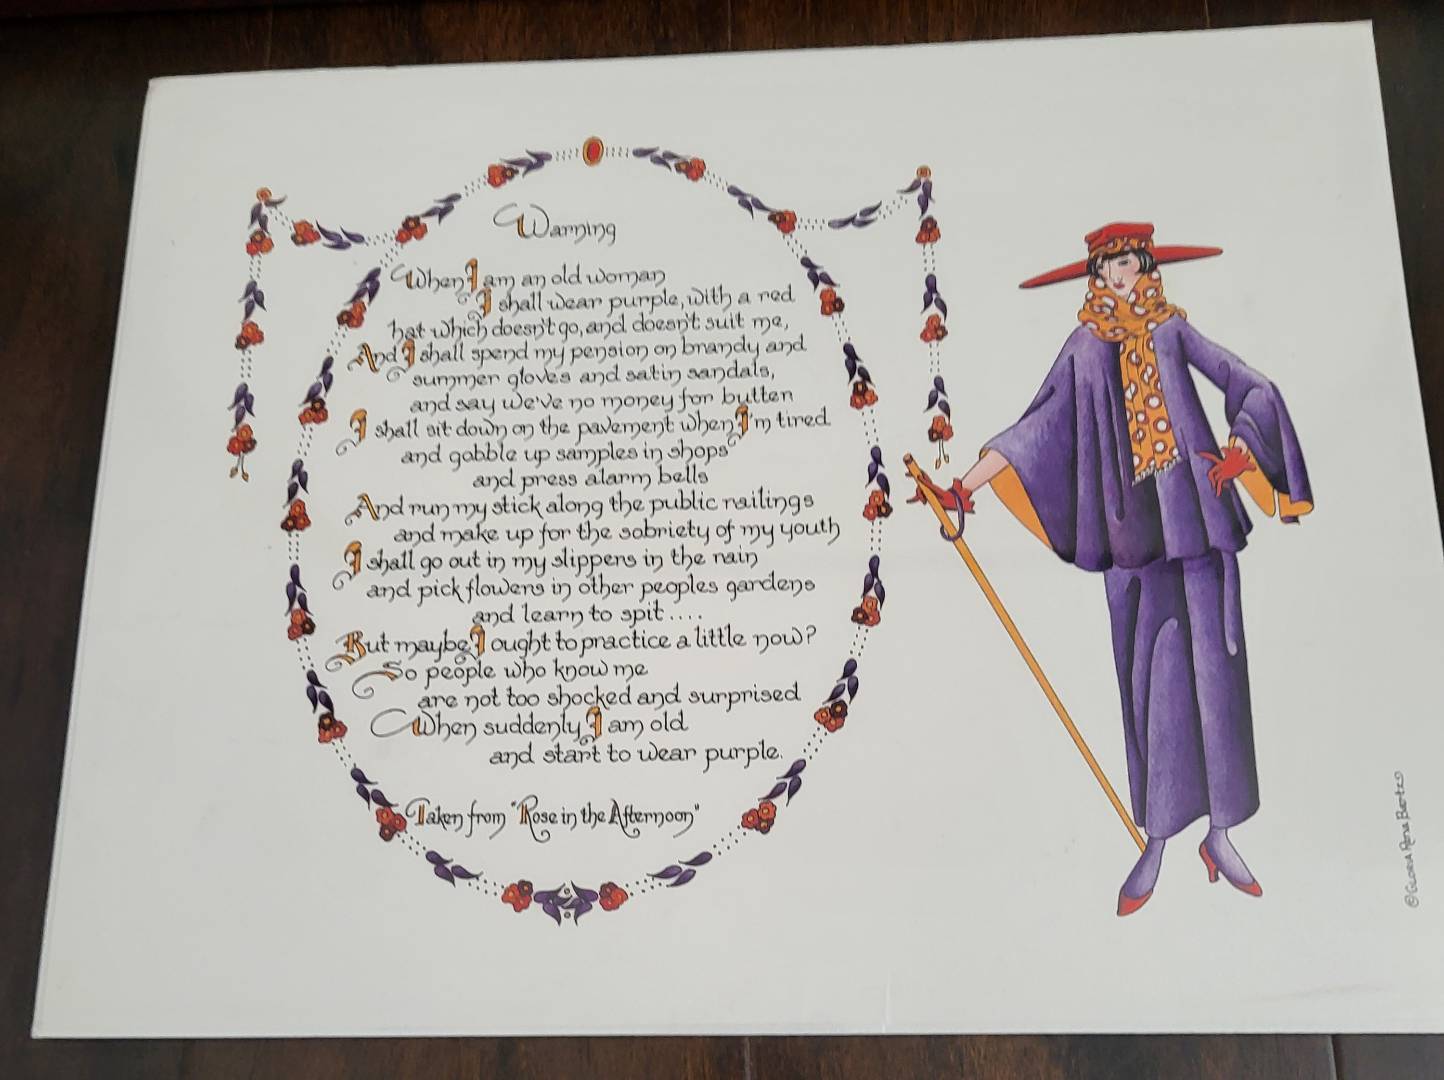 Warning
When I am an old woman
I shall wear purple, with a red
hat which doesn't go, and doesn't suit me,
And I shall spend my pension on brandy and
summer gloves and satin sandals,
and say we've no money for butter
I shall sit down on the pavement when I'm tired
and gobble up samples in shops
and press alarm bells
And run my stick along the public railings
and make up for the sobriety of my youth
I shall go out in my slippers in the rain
and pick flowers in other peoples gardens
and learn to spit....
But maybe I ought to practice a little now?
So people who know me
are not too shocked and surprised
When suddenly I am old
and start to wear purple.
Taken from "Rose in the Afternoon"
© GLORIA Rena Bertz